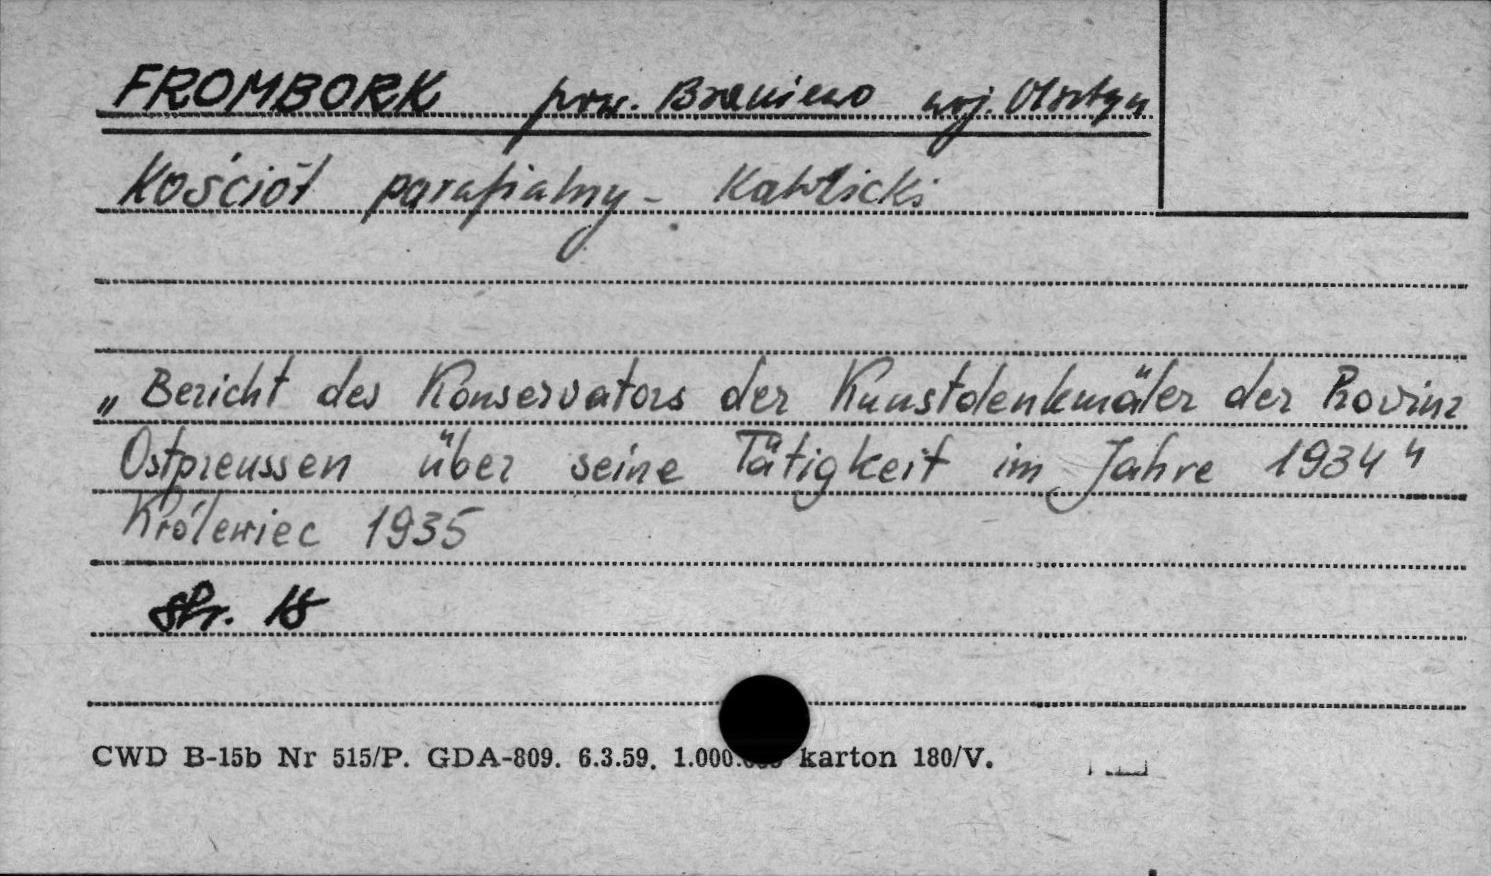 FROMBORK pow. Braniewo woj. Olsztyn
Kościół parafialny - Katolicki
„Bericht des Konservators der Kunstdenkmäler der Provinz
Ostpreussen über seine Tätigkeit im Jahre 1934"
Królewiec 1935
str. 15
CWD B-15b Nr 515/P. GDA-809. 6.3.59. karton 180/V.